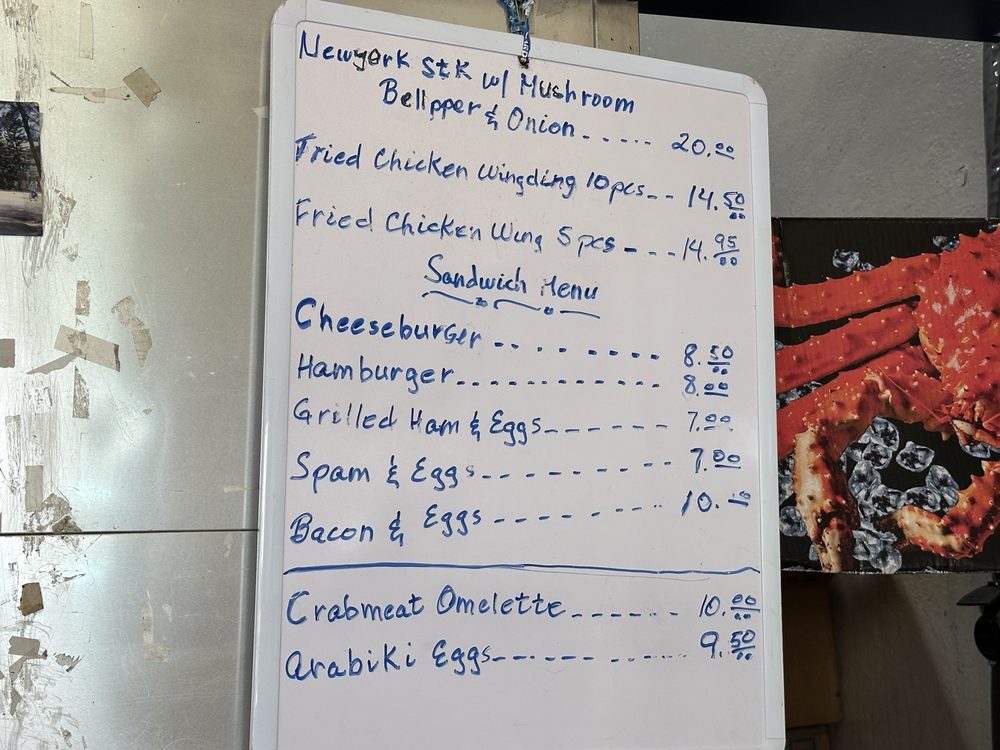 Newyork Stk w/ Mushroom
Bellpper & Onion ..... 20.00
Fried Chicken Wingding 10pcs -- 14.50
Fried Chicken Wing 5 pcs - --- 14.95
Sandwich Menu
Cheeseburger -- . . - - - - 8.50
Hamburger ............ 8.00
Grilled Ham & Eggs ------ 7.00
Spam & Eggs --------- 7.00
Bacon & Eggs --------- 10.00
Crabmeat Omelette ------ 10.00
arabiki Eggs ---------- 9.50